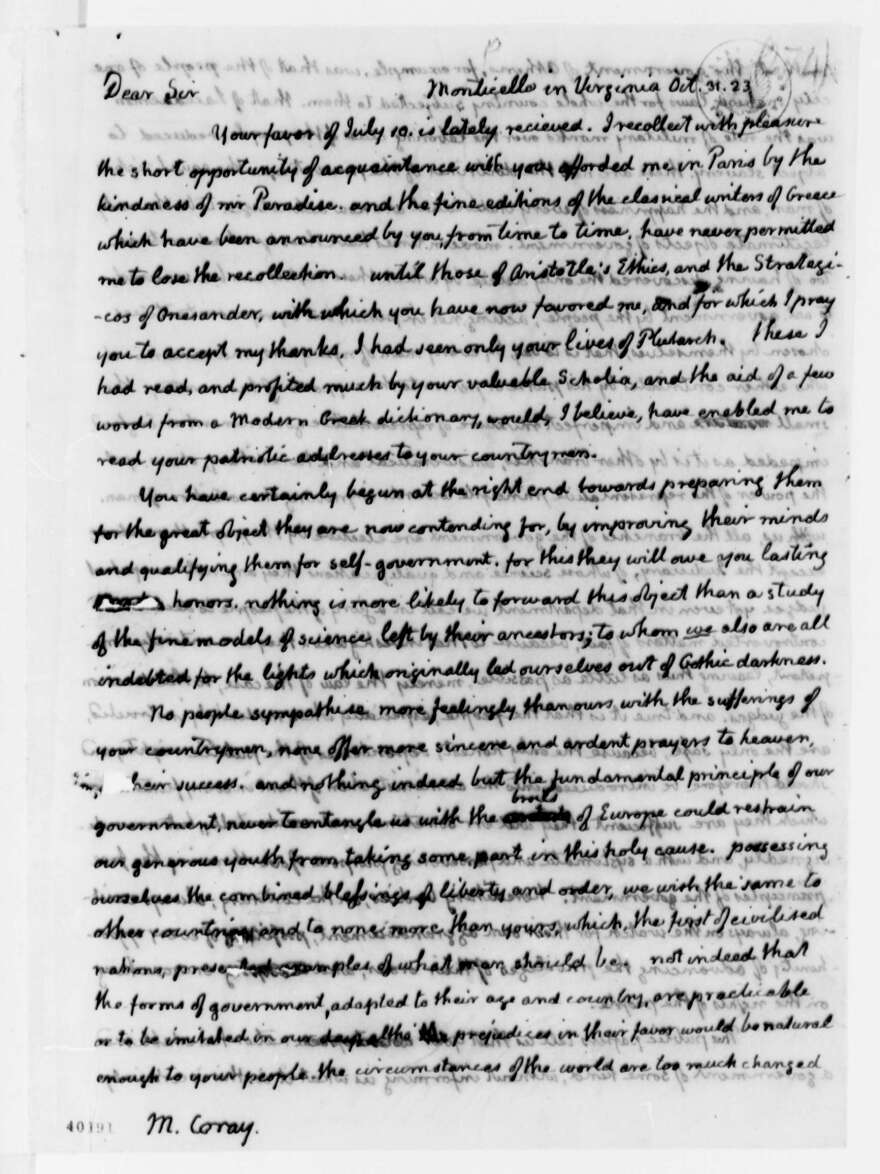 Dear Sir Monticello in Virginia Oct. 31. 23
Your favor of July 10. is lately recieved. I recollect with pleasure
the short opportunity of acquaintance with you afforded me in Paris by the
kindness of mr Paradise. and the fine editions of the classical writers of Greece
which have been announced by you, from time to time, have never permitted
me to lose the recollection. until those of Aristotle's Ethics, and the Strategi-
-cos of Onesander, with which you have now favored me, and for which I pray
you to accept my thanks, I had seen only your lives of Plutarch. these I
had read, and profited much by your valuable Scholia, and the aid of a few
words from a Modern Greek dictionary, would, I believe, have enabled me to
read your patriotic addresses to your countrymen.
You have certainly begun at the right end towards preparing them
for the great object they are now contending for, by improving their minds
and qualifying them for self-government. for this they will owe you lasting
honors. nothing is more likely to forward this object than a study
of the fine models of science left by their ancestors; to whom we also are all
indebted for the lights which originally led ourselves out of Gothic darkness.
No people sympathise more feelingly than ours with the sufferings of
your countrymen, none offer more sincere and ardent prayers to heaven,
heir success. and nothing indeed but the fundamental principle of our
government, never to entangle us with the broils of Europe could restrain
our generous youth from taking some part in this holy cause. possessing
ourselves the combined blessings of liberty and order, we wish the same to
other countries and to none more than yours, which, the first of civilised
nations, presented examples of what man should be. not indeed that
the forms of government, adapted to their age and country, are practicable
or to be imitated in our day, altho' prejudices in their favor would be natural
enough to your people. the circumstances of the world are too much changed
40191 M. Coray.